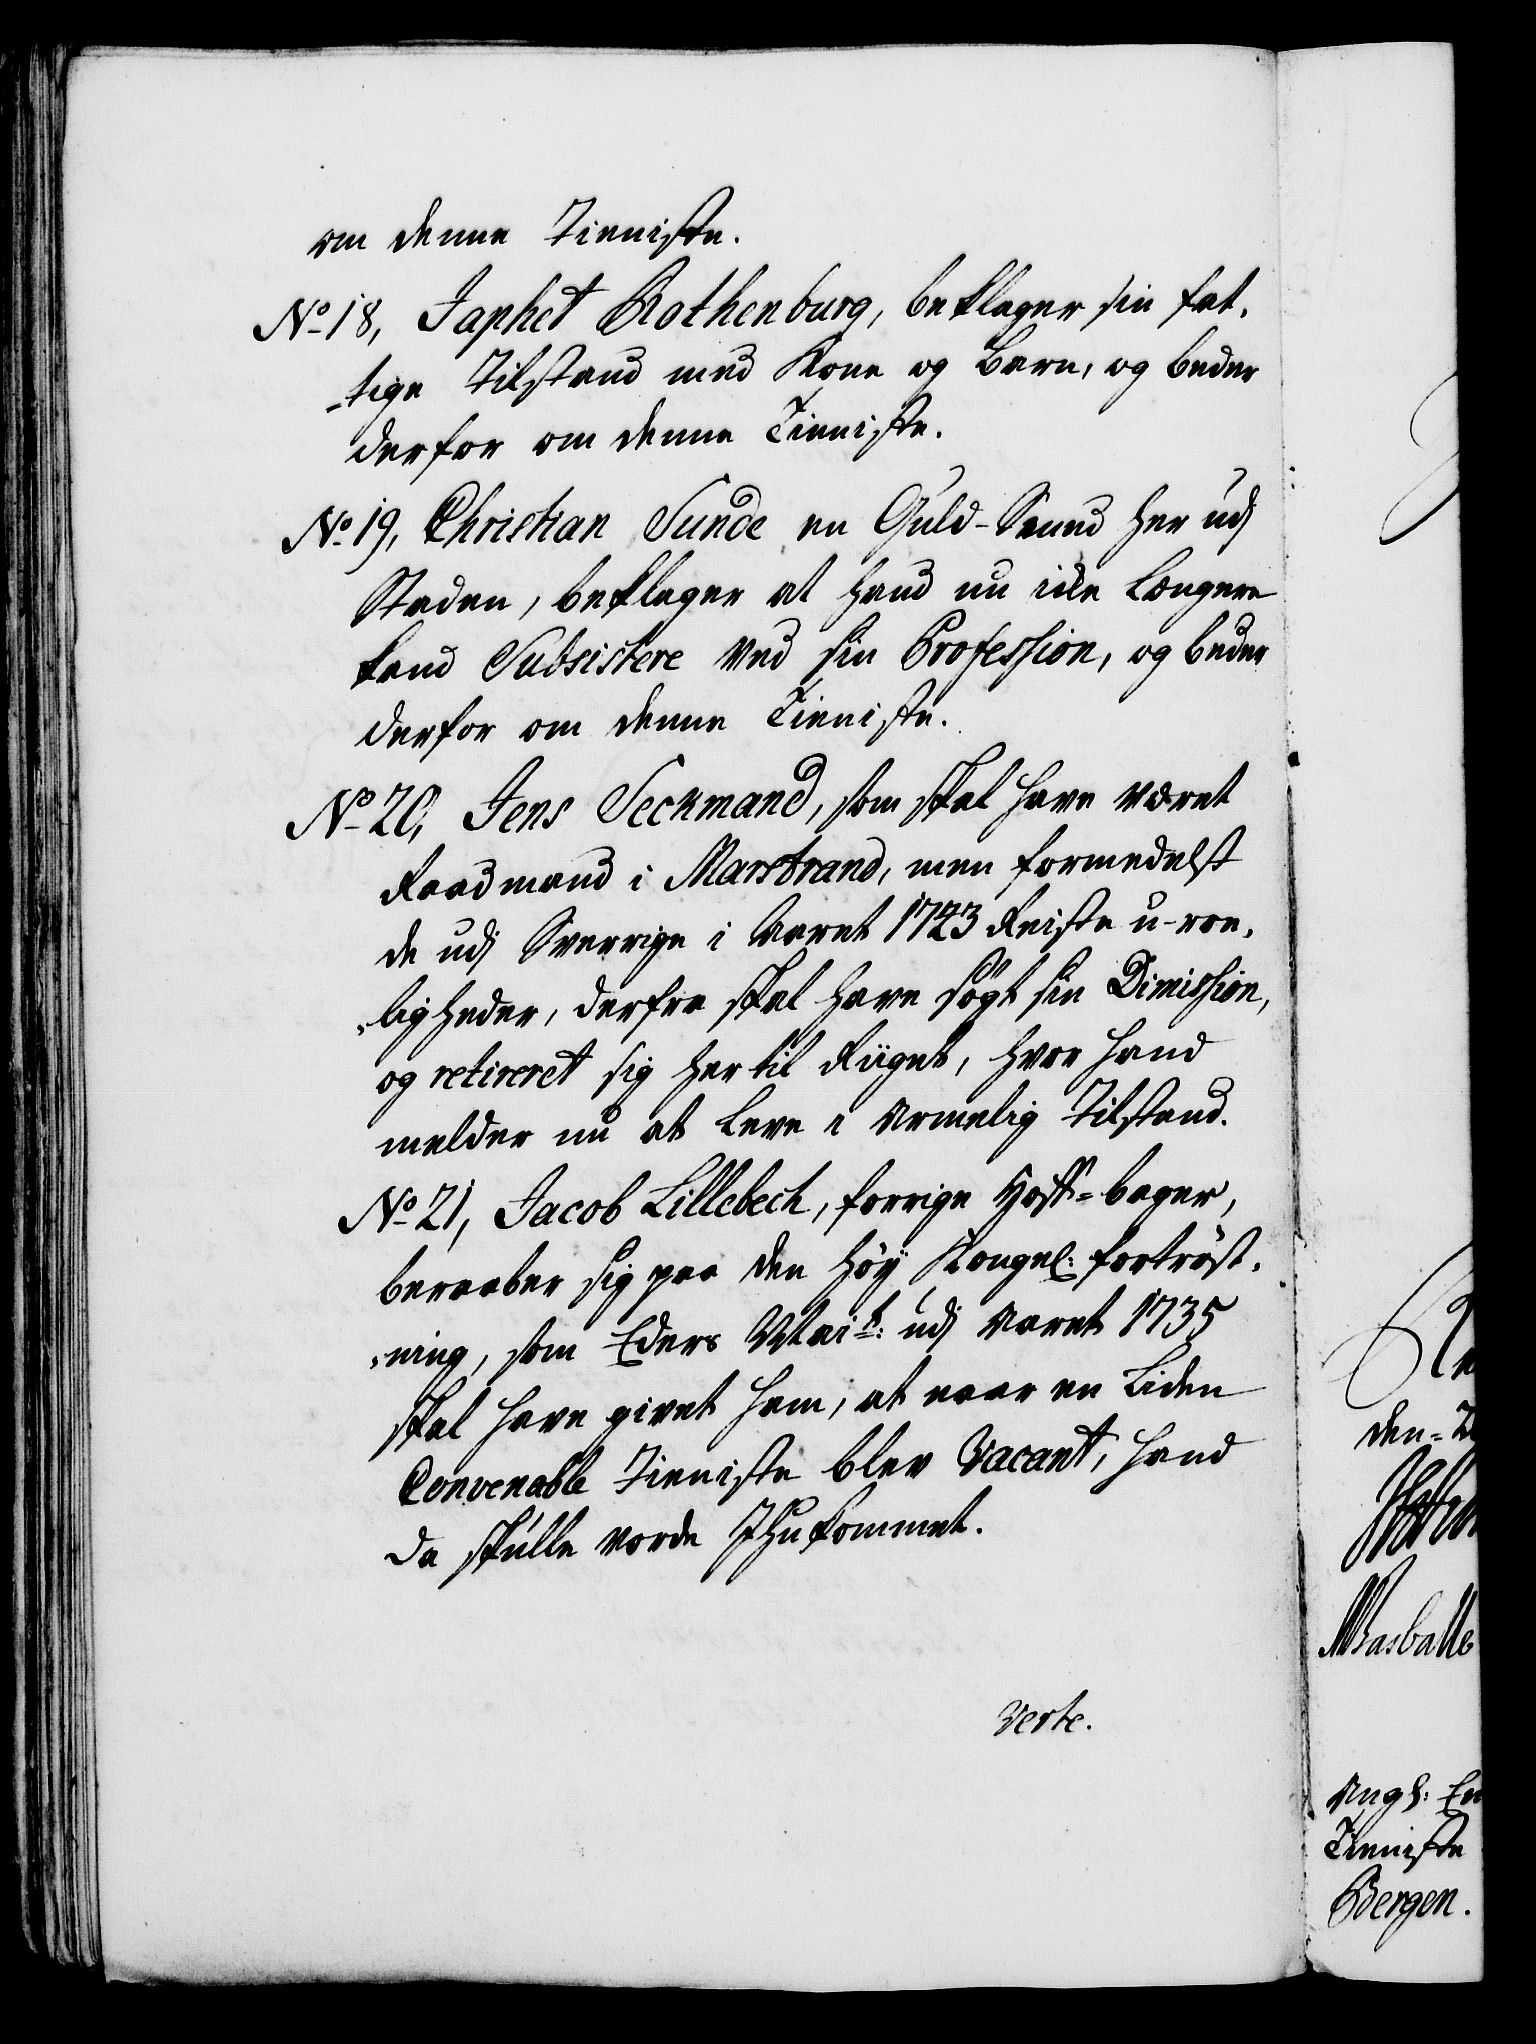 om denne Tieniste.
No 18, Japhet Rothenburg, beklager sin fat,
„tige Tilstand med Kone og Barn, og beder
derfor om denne Tieniste.
No 19, Christian Sunde en Guld-Smed her udj
Staden, beklager at hand nu icke længere
kand Subsistere ved sin Profession, og beder
derfor om denne Tieniste.
No 20, Jens Seckmand, som skal have været
Raadmand i Marstrand, men formedelst
de udj Sverrige i Aaret 1743 Reiste u-roe,
„ligheder, derfra skal have søgt sin Dimission,
og retireret sig her til Riiget, hvor hand
melder nu at leve i Armelig Tilstand.
No 21, Jacob Lillebech, forrige Hoff-bager,
beraaber sig paa den høy Kongel: fortrøst,
„ning, som Eders Mai:t: udj Aaret 1735
skal have givet ham, at naar en Liden
Convenable Tieniste blev Vacant, hand
da skulle vorde Ihukommet.
Verte.
den
ang:
Tieniste
Bergen.